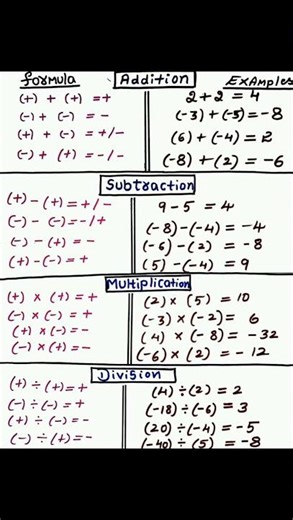 formula Addition Examples
(+) + (+) = + 2 + 2 = 4
(-) + (-) = - (-3) + (-5) = -8
(+) + (-) = +/- (6) + (-4) = 2
(-) + (+) = -/- (-8) + (2) = -6
Subtraction
(+) - (+) = +/- 9 - 5 = 4
(-) - (-) = -/+ (-8) - (-4) = -4
(-) - (+) = - (-6) - (2) = -8
(+) - (-) = + (5) - (-4) = 9
Multiplication
(+) × (+) = + (2) × (5) = 10
(-) × (-) = + (-3) × (-2) = 6
(+) × (-) = - (4) × (-8) = -32
(-) × (+) = - (-6) × (2) = -12
Division
(+) ÷ (+) = + (4) ÷ (2) = 2
(-) ÷ (-) = + (-18) ÷ (-6) = 3
(+) ÷ (-) = - (20) ÷ (-4) = -5
(-) ÷ (+) = - (-40) ÷ (5) = -8